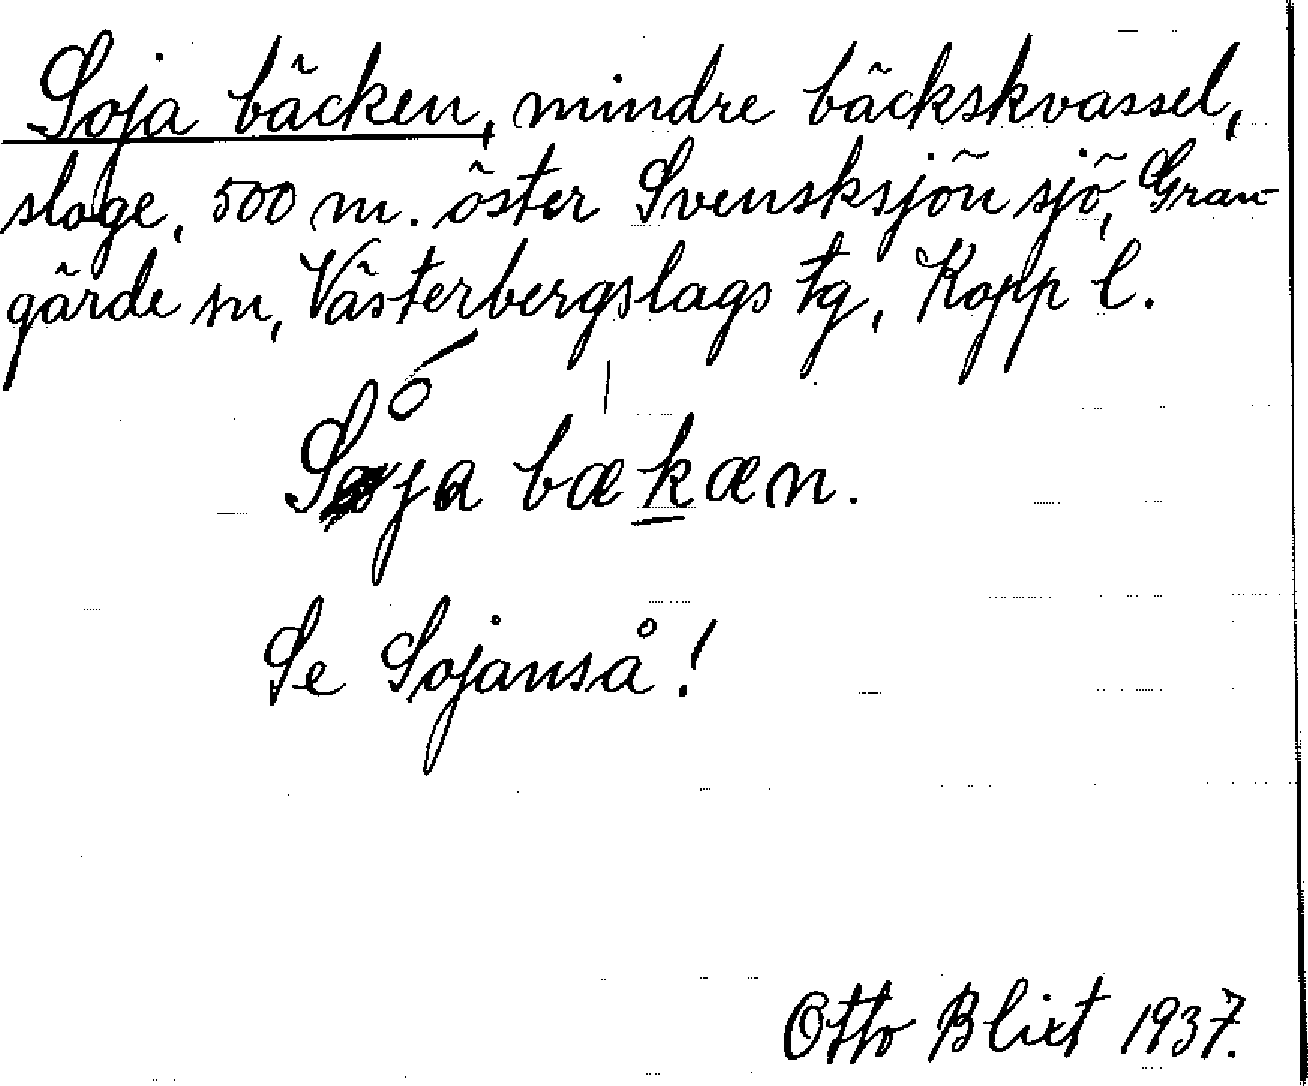 Soja bäcken, mindre bäckskvassel,
slage, 500 m. öster Svensksjön sjö, Gran-
gärde sn, Västerbergslags tg, Kopp l.
Sója bækæn.
Se Sojanså!
Otto Blixt 1937.